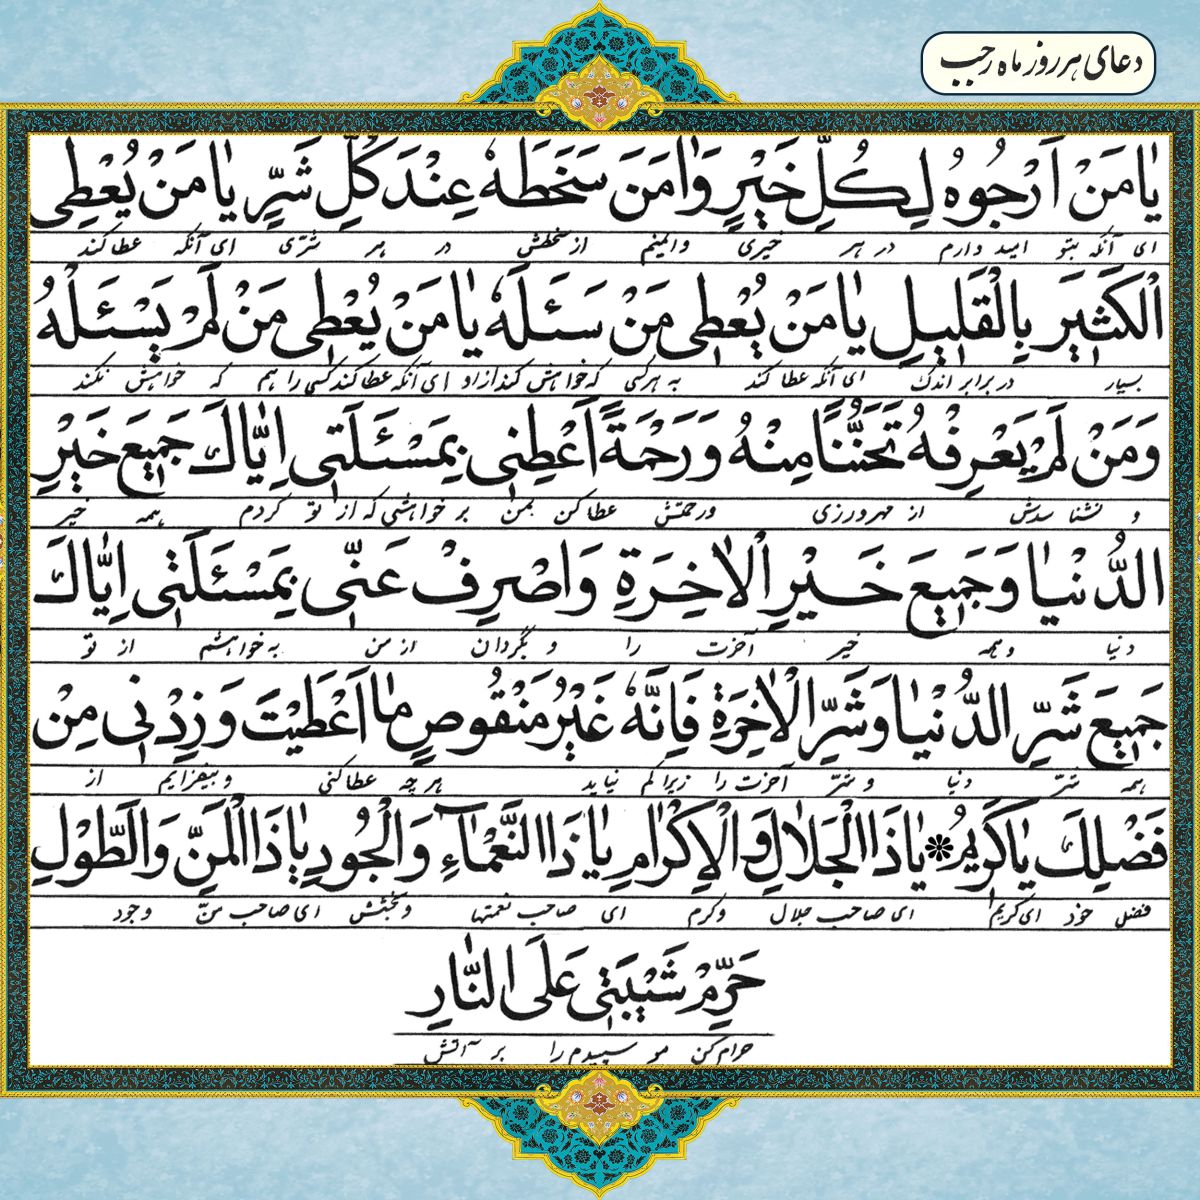 دعای هر روز ماه رجب
یٰا مَنْ اَرْجُوهُ لِكُلِّ خَيْرٍ وَاٰمَنَ سَخَطَهُ عِنْدَ كُلِّ شَرٍّ يٰا مَنْ يُعْطِى
ای آنکه بتو امید دارم در هر خیری و ایمنم از سخطش در هر شرّی ای آنکه عطا کند
الْكَثيرَ بِالْقَليلِ يٰا مَنْ يُعْطى مَنْ سَئَلَهُ يٰا مَنْ يُعْطى مَنْ لَمْ يَسْئَلْهُ
بسیار در برابر اندک ای آنکه عطا کند به هر کسی که خواهش کند از او ای آنکه عطا کند کسی را هم که خواهش نکند
وَ مَنْ لَمْ يَعْرِفْهُ تَحَنُّنًا مِنْهُ وَ رَحْمَةً اَعْطِنى بِمَسْئَلَتى اِيّٰاكَ جَميعَ خَيْرِ
و نشناسدش از مهرورزی و رحمتش عطا کن بمن بر خواهشی که از تو کردم همه خیر
الدُّنْيٰا وَ جَميعَ خَيْرِ الْاٰخِرَةِ وَ اصْرِفْ عَنّى بِمَسْئَلَتى اِيّٰاكَ
دنیا و همه خیر آخرت را و بگردان از من به خواهشم از تو
جَميعَ شَرِّ الدُّنْيٰا وَ شَرِّ الْاٰخِرَةِ فَاِنَّهُ غَيْرُ مَنْقُوصٍ مٰا اَعْطَيْتَ وَ زِدْنى مِنْ
همه شرّ دنیا و شرّ آخرت را زیرا کم نیاید هر چه عطا کنی و بیفزایم از
فَضْلِكَ يٰا كَريمُ ❇ يٰا ذَا الْجَلاٰلِ وَ الْاِكْرٰامِ يٰا ذَا النَّعْمٰاۤءِ وَ الْجُودِ يٰا ذَا الْمَنِّ وَ الطَّوْلِ
فضل خود ای کریم ای صاحب جلال و کرم ای صاحب نعمتها و بخشش ای صاحب منّ و جود
حَرِّمْ شَيْبَتى عَلَى النّٰارِ
حرام کن مو سپیدم را بر آتش